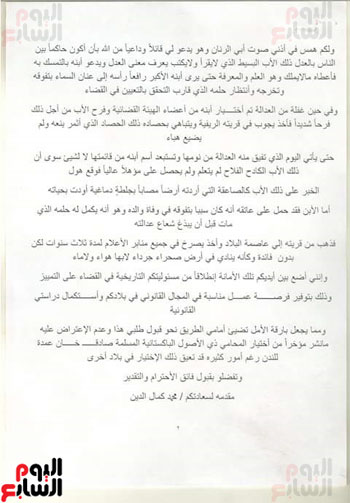 ولكم همس في أذني صوت أبي الرنان وهو يدعو لي قائلاً وداعياً من الله بأن أكون حاكماً بين
الناس بالعدل ذلك الأب البسيط الذي لايقرأ ولايكتب يعرف معنى العدل ويدعو أبنه بالتمسك به
فأعطاه مالايملك وهو العلم والمعرفة حتى يرى أبنه الأكبر رافعاً رأسه إلى عنان السماء بتفوقه
وتخرجه وأنتظار حلمه الذي قارب التحقق بالتعيين في القضاء
وفي حين غفلة من العدالة تم أختيار أبنه من أعضاء الهيئة القضائية وفرح الأب من أجل ذلك
فرحاً شديداً فأخذ يجوب في قريته الريفية ويتباهي بحصاده ذلك الحصاد الذي أثمر ينعه ولم
يضيع هباء
حتى يأتي اليوم الذي تفيق منه العدالة من نومها وتستبعد أسم أبنه من قائمتها لا لشيئ سوى أن
ذلك الأب الكادح الفلاح لم يتعلم ولم يحصل على مؤهلاً عالياً فوقع هول
الخبر على ذلك الأب كالصاعقة التي أردته أرضاً مصاباً بجلطةٍ دماغية أودت بحياته
أما الأبن فقد حمل على عاتقه أنه كان سببا بتفوقه في وفاة والده وهو أنه يكمل له حلمه الذي
مات قبل أن يبذغ شعاع عدالته
فذهب من قريته إلي عاصمة البلاد وأخذ يصرخ في جميع منابر الأعلام لمدة ثلاث سنوات لكن
بدون فائدة وكأنه ينادي في أرض صحراء جرداء لابها هواء ولاماء
وإنني أضع بين أيديكم تلك الأمانة إنطلاقاً من مسئوليتكم التاريخية في القضاء على التمييز
وذلك بتوفير فرصة عمل مناسبة في المجال القانوني في بلادكم وأستكمال دراستي
القانونية
ومما يجعل بارقة الأمل تضيئ أمامي الطريق نحو قبول طلبي هذا وعدم الإعتراض عليه
مانشر مؤخراً من أختيار المحامي ذي الأصول الباكستانية المسلمة صادق خان عمدة
للندن رغم أمور كثيره قد تعيق ذلك الإختيار في بلاد أخرى
وتفضلو بقبول فائق الأحترام والتقدير
مقدمه لسعادتكم / محمد كمال الدين
اليوم السابع
اليوم السابع
اليوم السابع